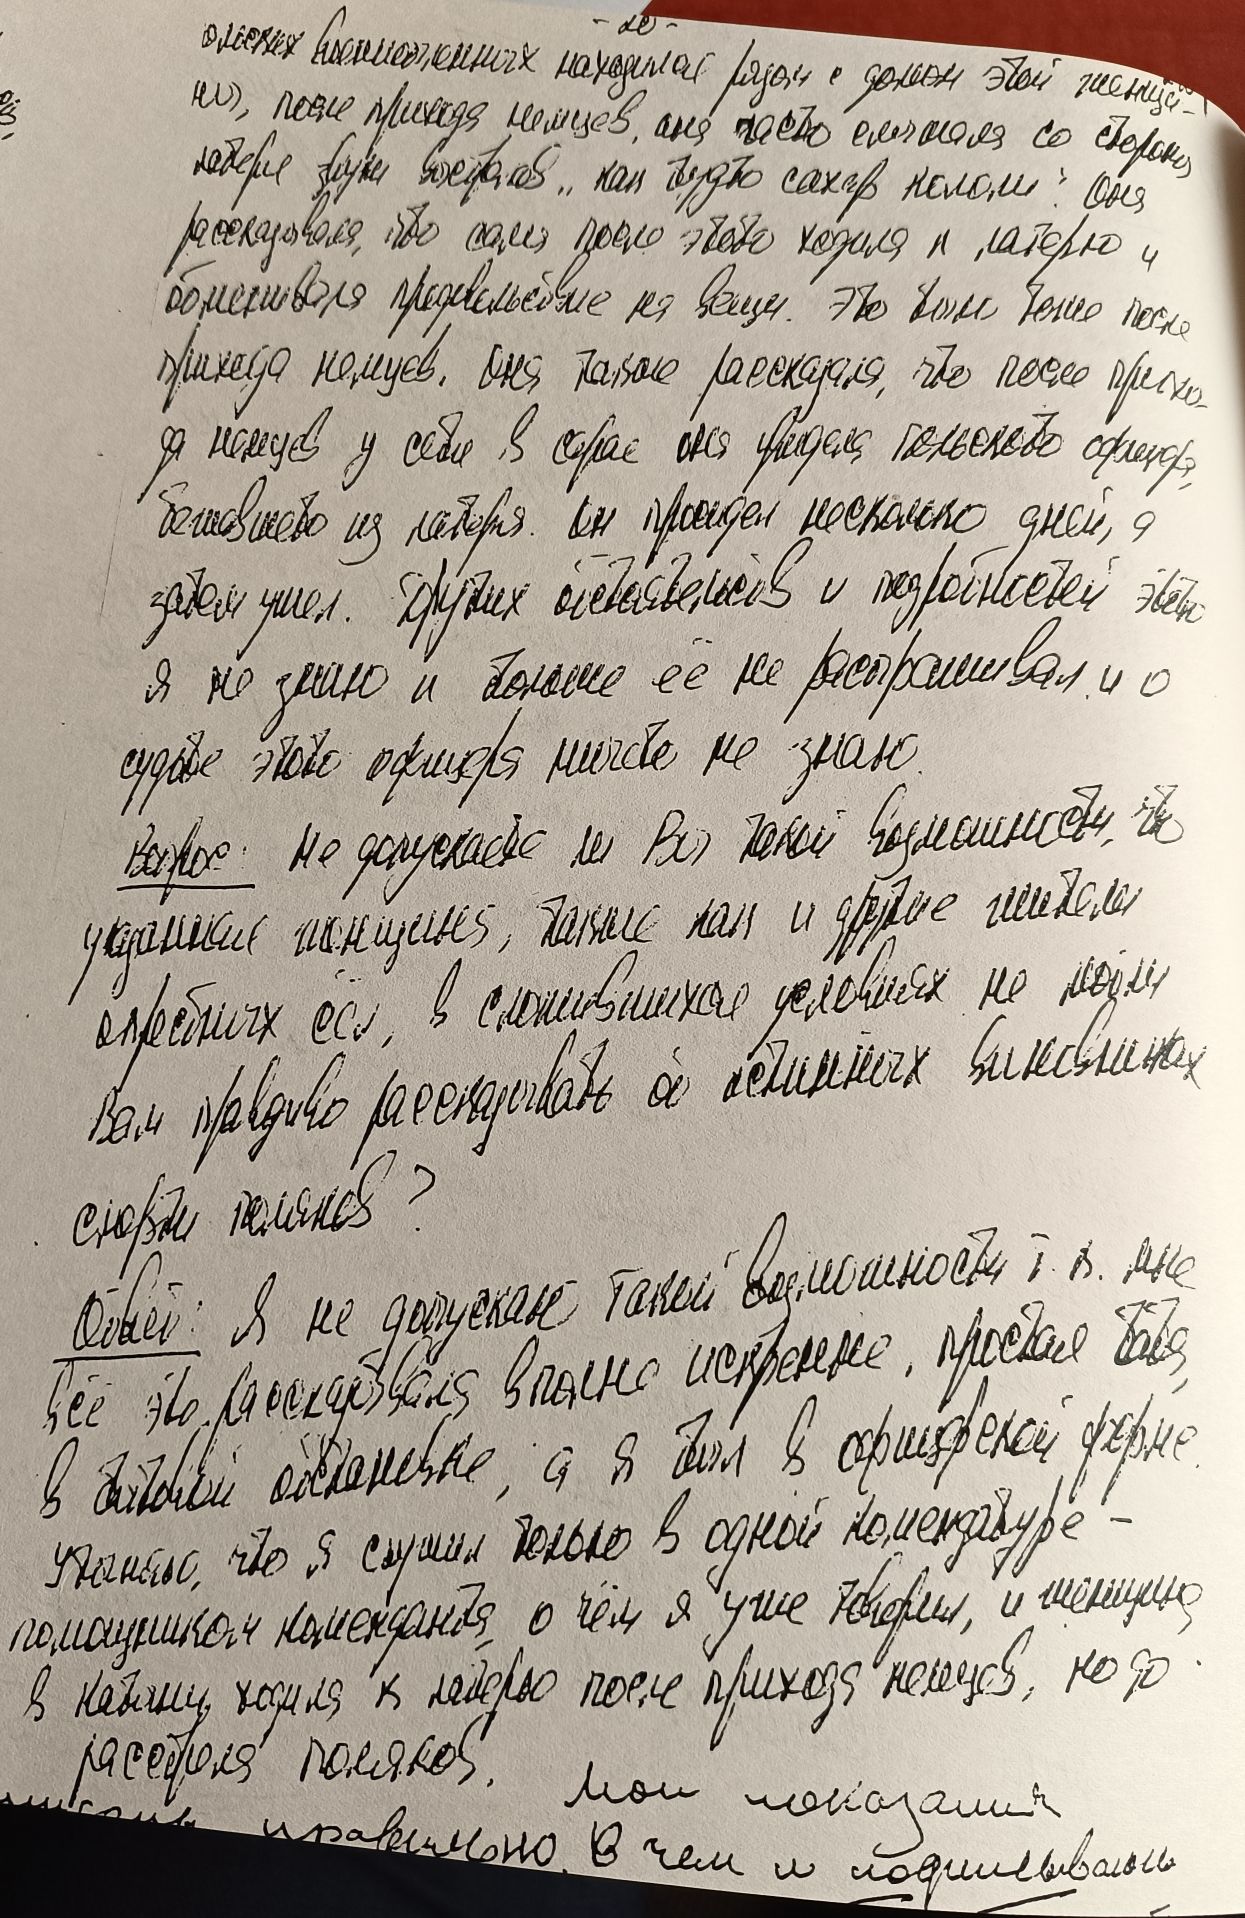 - 20 -
ольских военнопленных находился рядом с домом этой женщи-
ны, после прихода немцев, она часто слышала со стороны
лагеря звуки выстрелов „как будто сахар кололи". Она
рассказывала, что сама после этого ходила к лагерю и
обменивала продовольствие на вещи. Это было тоже после
прихода немцев. Она также рассказала, что после прихо-
да немцев у себя в сарае она увидела польского офицера,
бежавшего из лагеря. Он просидел несколько дней, а
затем ушел. Других обстоятельств и подробностей этого
я не знаю и больше её не расспрашивал и о
судьбе этого офицера ничего не знаю.
Вопрос: Не допускаете ли Вы такой возможности, что
указанная женщина, также как и другие жители
окрестных сёл, в сложившихся условиях не могли
Вам правдиво рассказывать об истинных виновниках
смерти поляков?
Ответ: Я не допускаю такой возможности т.к. мне
всё это рассказывала вполне искренне, простая баба,
в бытовой обстановке, а я был в офицерской форме.
Уточняю, что я служил только в одной комендатуре -
помощником коменданта, о чём я уже говорил, и женщина
в Катыни ходила к лагерю после прихода немцев, но до
расстрела поляков. Мои показания
правильно. В чем и подписываюсь